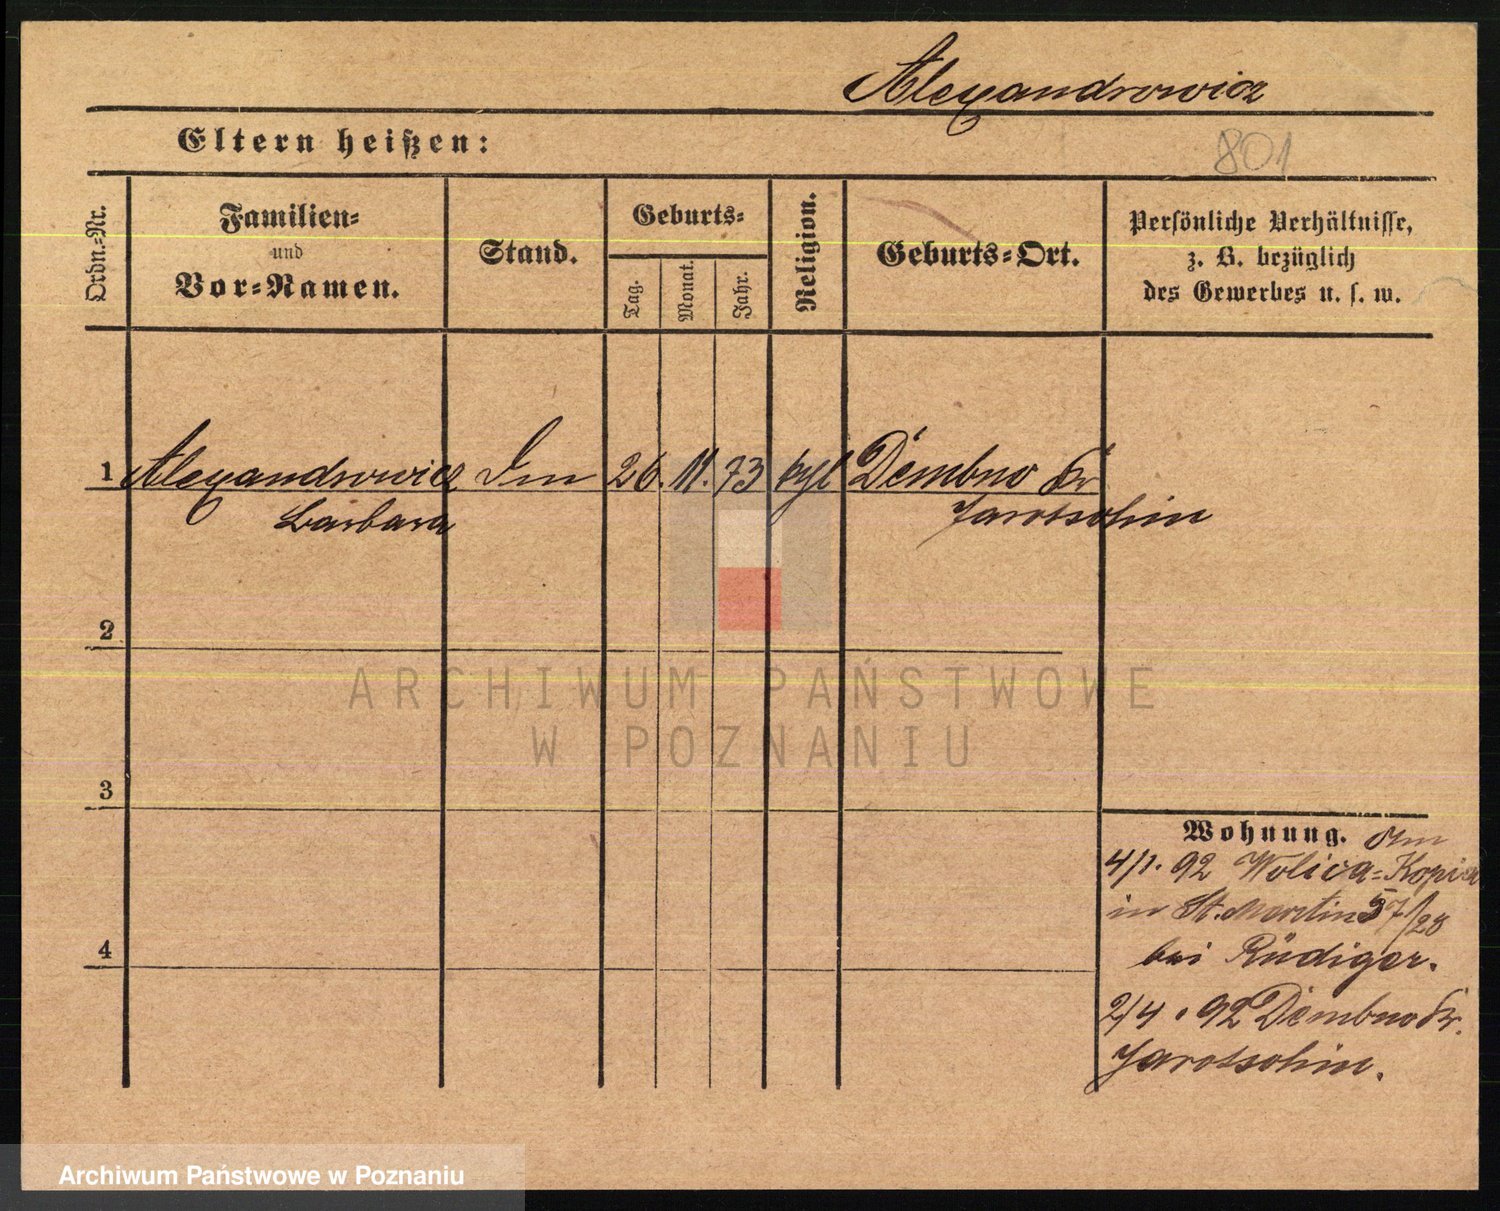 Alexandrowicz
Eltern heißen:
801
Ordn.-Nr.
Familien-
und
Vor-Namen.
Stand.
Geburts-
Tag.
Monat.
Jahr.
Religion.
Geburts-Ort.
Persönliche Verhältnisse,
z. B. bezüglich
des Gewerbes u. s. w.
1 Alexandrowicz 26. 11. 73 Dembno Kr
Barbara Jarotschin
2
ARCHIWUM PAŃSTWOWE
W POZNANIU
3
Wohnung.
4/1. 92 Wolica-Kopia
in St. Martin 57/28
4
bei Rüdiger.
2/4. 92 Dembno Kr.
Jarotschin.
Archiwum Państwowe w Poznaniu